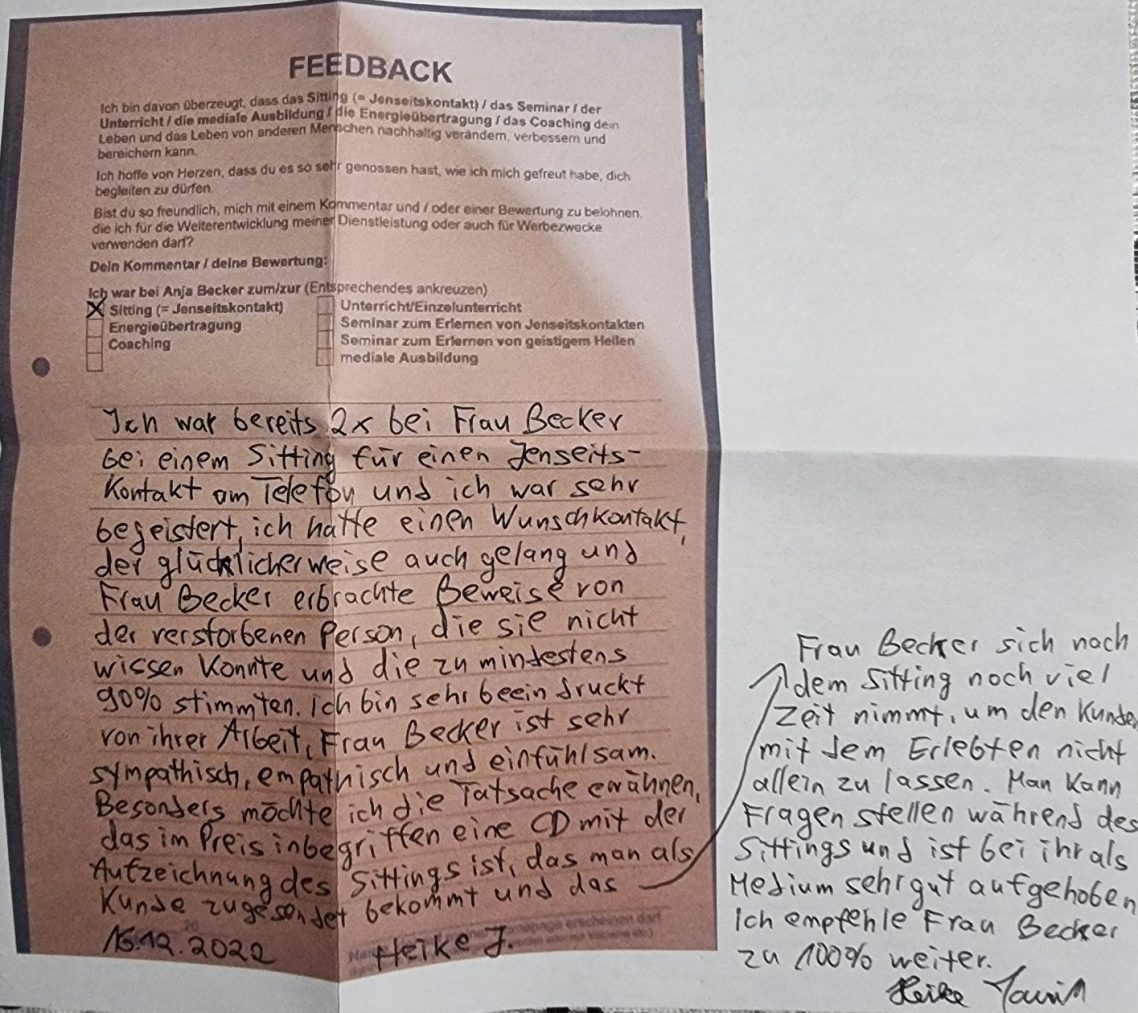 FEEDBACK
Ich bin davon überzeugt, dass das Sitting (= Jenseitskontakt) / das Seminar / der
Unterricht / die mediale Ausbildung / die Energieübertragung / das Coaching dein
Leben und das Leben von anderen Menschen nachhaltig verändern, verbessern und
bereichern kann.
Ich hoffe von Herzen, dass du es so sehr genossen hast, wie ich mich gefreut habe, dich
begleiten zu dürfen.
Bist du so freundlich, mich mit einem Kommentar und / oder einer Bewertung zu belohnen,
die ich für die Weiterentwicklung meiner Dienstleistung oder auch für Werbezwecke
verwenden darf?
Dein Kommentar / deine Bewertung:
Ich war bei Anja Becker zum/zur (Entsprechendes ankreuzen)
X Sitting (= Jenseitskontakt)
Energieübertragung
Coaching
Unterricht/Einzelunterricht
Seminar zum Erlernen von Jenseitskontakten
Seminar zum Erlernen von geistigem Heilen
mediale Ausbildung
Ich war bereits 2x bei Frau Becker
bei einem Sitting für einen Jenseits-
Kontakt am Telefon und ich war sehr
begeistert, ich hatte einen Wunschkontakt,
der glücklicherweise auch gelang und
Frau Becker erbrachte Beweise von
der verstorbenen Person, die sie nicht
wissen konnte und die zu mindestens
90% stimmten. Ich bin sehr beeindruckt
von ihrer Arbeit, Frau Becker ist sehr
sympathisch, empathisch und einfühlsam.
Besonders möchte ich die Tatsache ewähnen,
das im Preis inbegriffen eine CD mit der
Aufzeichnung des Sittings ist, das man als
Kunde zugesendet bekommt und das
16.12.2022 Heike J.
Frau Becker sich nach
dem Sitting noch viel
Zeit nimmt, um den Kunden
mit dem Erlebten nicht
allein zu lassen. Man kann
Fragen stellen während des
Sittings und ist bei ihr als
Medium sehr gut aufgehoben
Ich empfehle Frau Becker
zu 100% weiter.
Heike